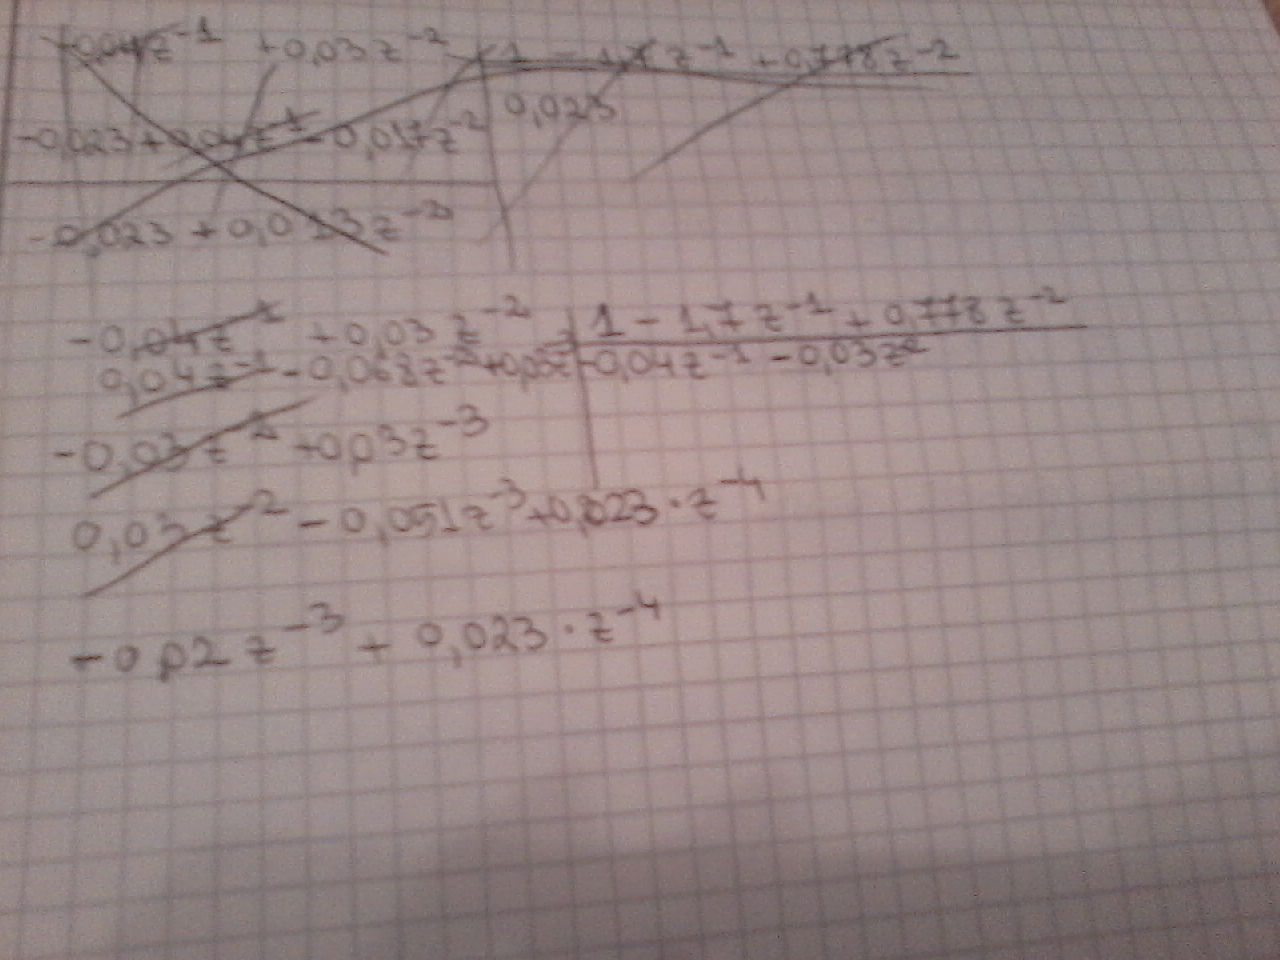 -0,04z⁻¹ +0,03z⁻² 1 - 1,7z⁻¹ +0,778z⁻²
-0,023+0,04z⁻¹-0,017z⁻² 0,023
-0,023+0,013z⁻²
-0,04z⁻¹ +0,03z⁻² 1-1,7z⁻¹+0,778z⁻²
0,04z⁻¹-0,068z⁻² -0,04z⁻¹-0,03z²
-0,03z⁻² +0,03z⁻³
0,03z⁻²-0,051z⁻³+0,023·z⁻⁴
-0,02z⁻³+0,023·z⁻⁴